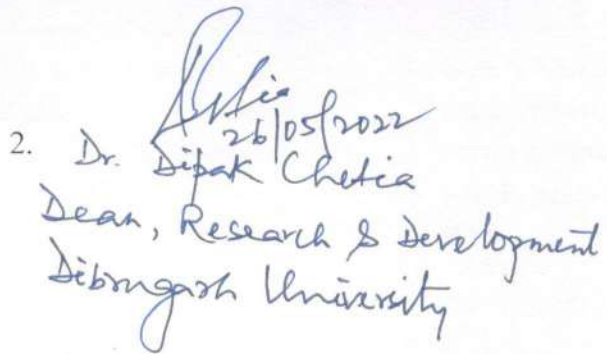 26/05/2022
2. Dr. Dipak Chetia
Dean, Research & Development
Dibrugarh University